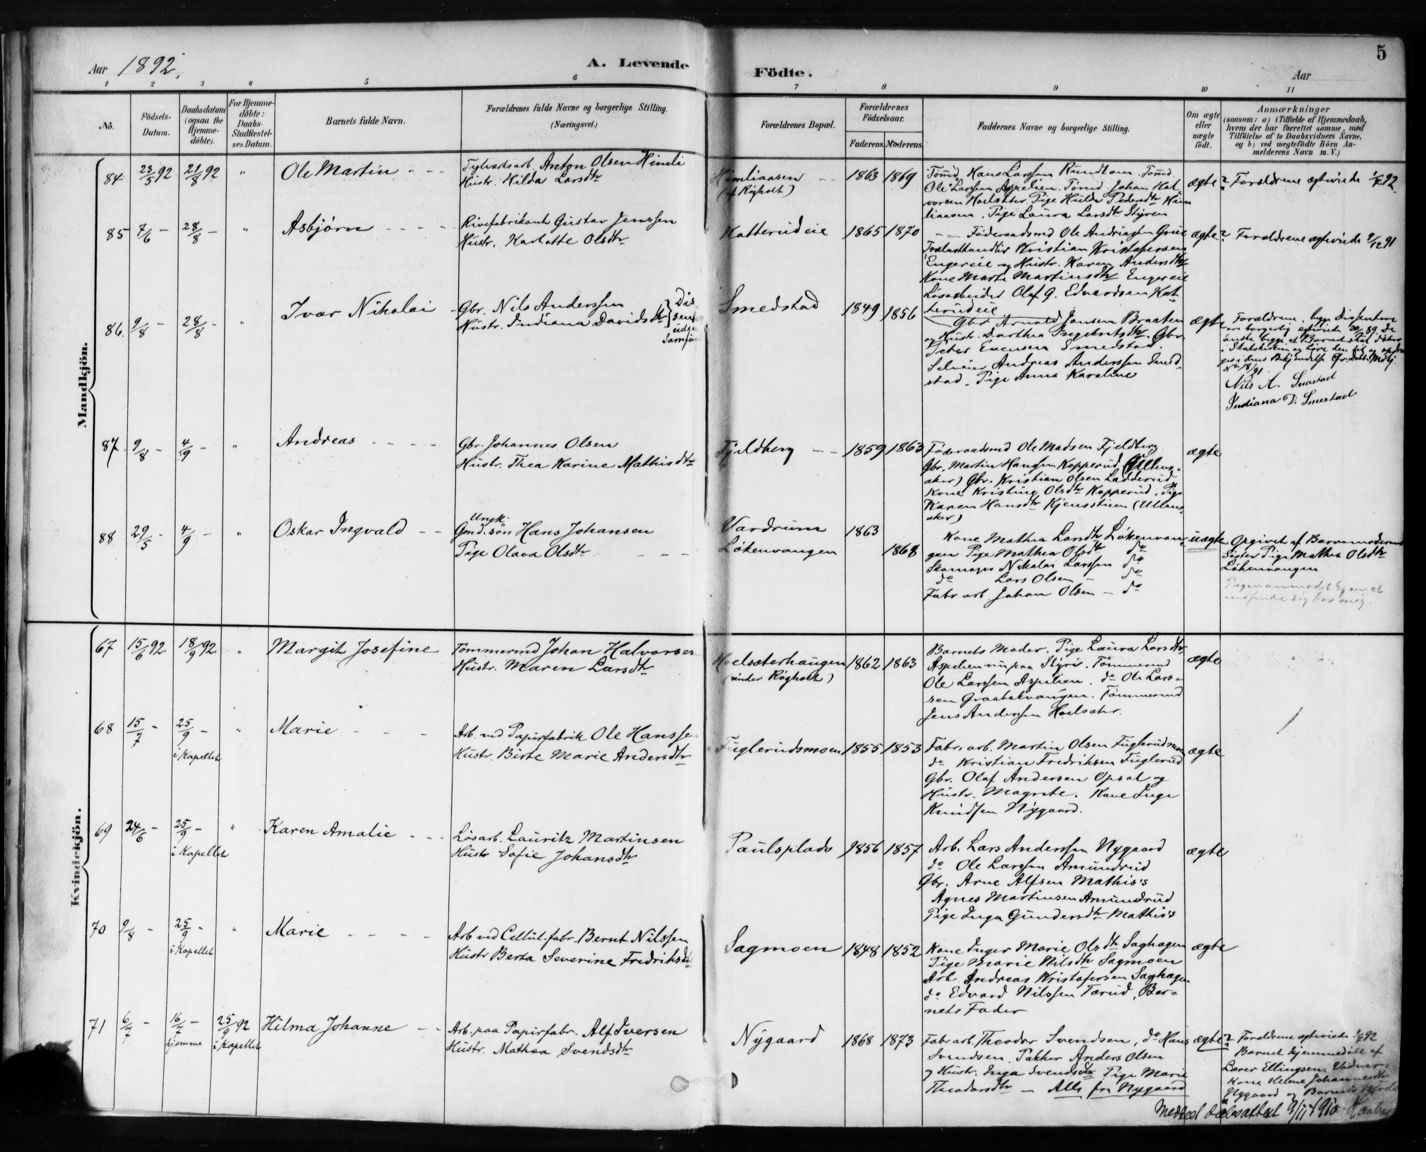 Aar 1892.
A. Levende Födte.
Aar
5
1 2 3 4 5 6 7 8 9 10 11
No.
Födsels-
Datum.
Daabsdatum
(ogsaa for
Hjemme-
döbte).
For Hjemme-
döbte:
Daabs-
Stadfæstel-
ses Datum.
Barnets fulde Navn.
Forældrenes fulde Navne og borgerlige Stilling.
(Næringsvei.)
Forældrenes Bopæl.
Forældrenes
Födselsaar.
Faderens. Moderens.
Faddernes Navne og borgerlige Stilling.
Om ægte
eller
uægte
födt.
Anmærkninger
(saasom: a) i Tilfælde af Hjemmedaab,
hvem der har forrettet samme, med
Tilföielse af to Daabsvidners Navne,
og b) ved uægtefödte Börn An-
melderens Navn m. V.)
Mandkjön.
84 23/5 92 21/8 92 " Ole Martin
Anton Olsen Himli
Hustr. Hilda Larsdtr
Himliaasen
1863 1869
Tömd. Hans Larssen Rundtom. Tömd
Ole Larssen Aspelien. Tömd Johan Hal-
vorsen Hoelsæter Pige Hulda Pedersdtr Him-
liaasen, Pige Laura Larsdtr Styren
ægte
Forældrene ægteviede
85 7/6 – 28/8 – " Asbjörn
Rivefabrikant Gustav Jenssen
Hustr. Karlotte Olsdtr
Katterudeie
1865 1870
Kristian Kristofersen
Engereie og Hustr. Karen Andersdtr
Kone Marte Martinsdtr Engereie
Lösarbeider Olaf G. Edvardsen Kat-
terudeie
ægte
Forældrene ægteviede 9/12 91
86. 9/8 – 28/8 – Ivar Nikolai
Gbr. Nils Anderssen
Hustr. Indiana Davidsdtr
Smedstad
1849 1856
Gbr Arnold Jensen Braaten
og Hustr. Dorthea Ingebretsdtr. Gbr.
Peter Evensen Smedstad.
Selveier Andreas Anderssen Smed-
stad, Pige Anna Karoline
ægte
Forældrene,
Nils A. Smestad
Indiana D. Smestad
87 9/8 – 4/9 – " Andreas
Gbr. Johannes Olsen
Hustr. Thea Karine Mathisdtr
Fjeldberg
1859 1863
Föderaadsmd Ole Madsen Fjeldberg
Gbr. Martin Hansen Kopperud (Ullens-
aker) Gbr. Kristian Olsen Ladderud
Kone Kristine Olsdtr Kopperud, Pige
Karen Hansdtr Kjensstien (Ullens-
aker)
ægte
88 29/5 – 4/9 – " Oskar Ingvald
Ungk.
Gmd.sön Hans Johansen
Pige Olava Olsdtr
Vardrum
Lökenvangen
1863
1868
Kone Mathea Larsdtr Lökenvan-
gen Pige Mathea Olsdtr do
Skomager Nikolai Larssen do
do Lars Olsen – do
Fabr. arb. Johan Olsen – do
uægte
Opgivet af Barnemoderens
Söster Pige Mathea Olsdtr
Lökenvangen
Kvindekjön.
67 15/6 92 18/9 92 " Margit Josefine
Tömmermd Johan Halvorsen
Hustr. Maren Larsdtr
Hoelsæterhaugen
(under Röyholt)
1862 1863
Barnets Moder. Pige Laura Larsdtr
Aspelien nu paa Styri. Tömmermd
Ole Larssen Aspelien. do Ole Lars-
sen Graatakvangen. Tömmermd
Jens Anderssen Hoelsæter.
ægte
68 15/7 – 25/9 – " Marie
i Kapellet
Arb. ved Papirfabrik Ole Hanssen
Hustr. Birte Marie Andersdtr
Fuglerudsmoen
1855 1853
Fabr. arb. Martin Olsen Fuglerudmoen
do Kristian Fredriksen Fuglerud
Gbr. Olaf Andersen Opsal og
Hustr. Magrete. Kone Inga
Knudsen Nygaard.
ægte
69 24/6 – 25/9 – " Karen Amalie
i Kapellet
Lösarb. Lauritz Martinsen
Hustr Sofie Johansdtr
Paulsplads
1856 1857
Arb. Lars Anderssen Nygaard
do Ole Larssen Amundrud
Gbr. Arne Alfsen Mathis's
Agnes Martinsen Amundrud
Pige Inga Gundersdtr Mathis's
ægte
70 9/8 – 25/9 – " Marie
i Kapellet
Arb ved Cellul.fabr. Bernt Nilssen
Hustr Berta Severine Fredriksdtr
Sagmoen
1848 1852
Kone Inger Marie Olsdtr Saghagen
Pige Marie Nilsdtr Sagmoen
Arb. Andreas Kristofersen Saghagen
do Edvard Nilssen Tærud, Bar-
nets Fader
ægte
71 6/7 – 16/7 – 25/9 92 Hilma Johanne
hjemme i Kapellet
Arb. paa Papirfabr. Alf Iversen
Hustr. Mathea Svendsdtr
Nygaard
1868 1873
Fabr. arb Theodor Svendsen, do Hans
Svendsen. Pakker Anders Olsen
og Hustr. Inga Svendsdtr Pige Marie
Theodorsdtr – Alle fra Nygaard
ægte
Forældrene ægteviede
Barnet hjemmedöbt af
Lærer Ellingsen. Vidner:
Kone Helene Johannesdtr
Nygaard og Barnets
1910